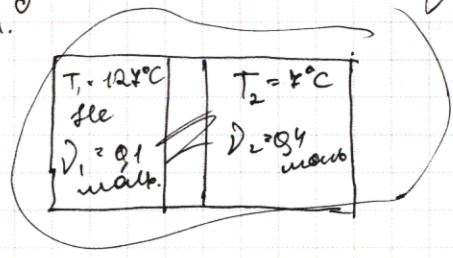 T₁ = 127°C
He
ν₁ = 0,1
моль.
T₂ = 7°C
ν₂ = 0,4
моль